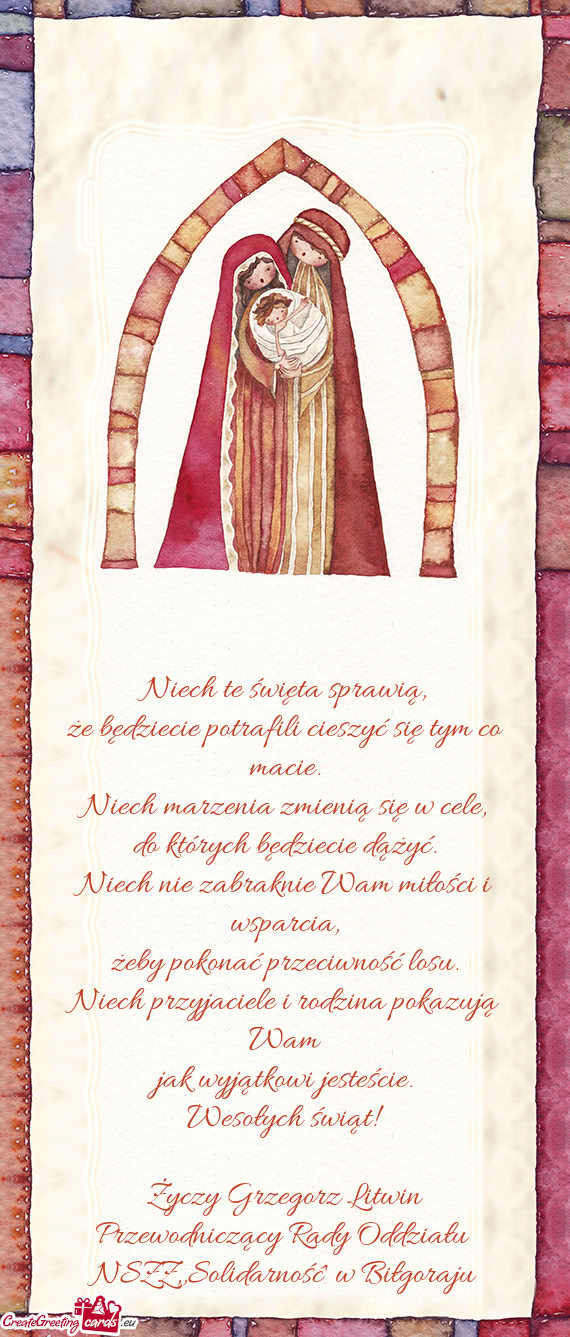 Niech te święta sprawią,
że będziecie potrafili cieszyć się tym co
macie.
Niech marzenia zmienią się w cele,
do których będziecie dążyć.
Niech nie zabraknie Wam miłości i
wsparcia,
żeby pokonać przeciwność losu.
Niech przyjaciele i rodzina pokazują
Wam
jak wyjątkowi jesteście.
Wesołych świąt!
Życzy Grzegorz Litwin
Przewodniczący Rady Oddziału
NSZZ„Solidarność" w Biłgoraju
CreateGreeting cards .eu